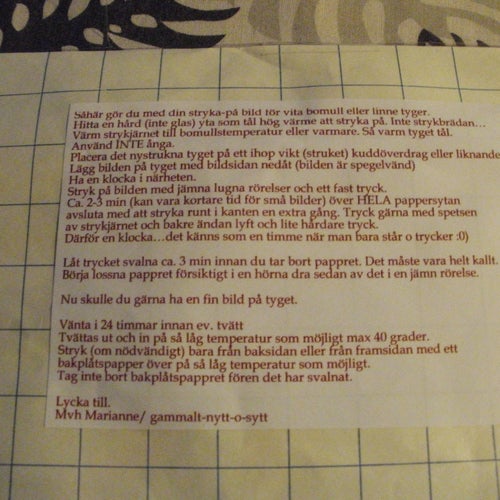 Såhär gör du med din stryka-på bild för vita bomull eller linne tyger.
Hitta en hård (inte glas) yta som tål hög värme att stryka på. Inte strykbrädan…
Värm strykjärnet till bomullstemperatur eller varmare. Så varm tyget tål.
Använd INTE ånga.
Placera det nystrukna tyget på ett ihop vikt (struket) kuddöverdrag eller liknande
Lägg bilden på tyget med bildsidan nedåt (bilden är spegelvänd)
Ha en klocka i närheten.
Stryk på bilden med jämna lugna rörelser och ett fast tryck.
Ca. 2-3 min (kan vara kortare tid för små bilder) över HELA pappersytan
avsluta med att stryka runt i kanten en extra gång. Tryck gärna med spetsen
av strykjärnet och bakre ändan lyft och lite hårdare tryck.
Därför en klocka…det känns som en timme när man bara står o trycker :0)
Låt trycket svalna ca. 3 min innan du tar bort pappret. Det måste vara helt kallt.
Börja lossna pappret försiktigt i en hörna dra sedan av det i en jämn rörelse.
Nu skulle du gärna ha en fin bild på tyget.
Vänta i 24 timmar innan ev. tvätt
Tvättas ut och in på så låg temperatur som möjligt max 40 grader.
Stryk (om nödvändigt) bara från baksidan eller från framsidan med ett
bakplåtspapper över på så låg temperatur som möjligt.
Tag inte bort bakplåtspappret fören det har svalnat.
Lycka till.
Mvh Marianne/ gammalt-nytt-o-sytt